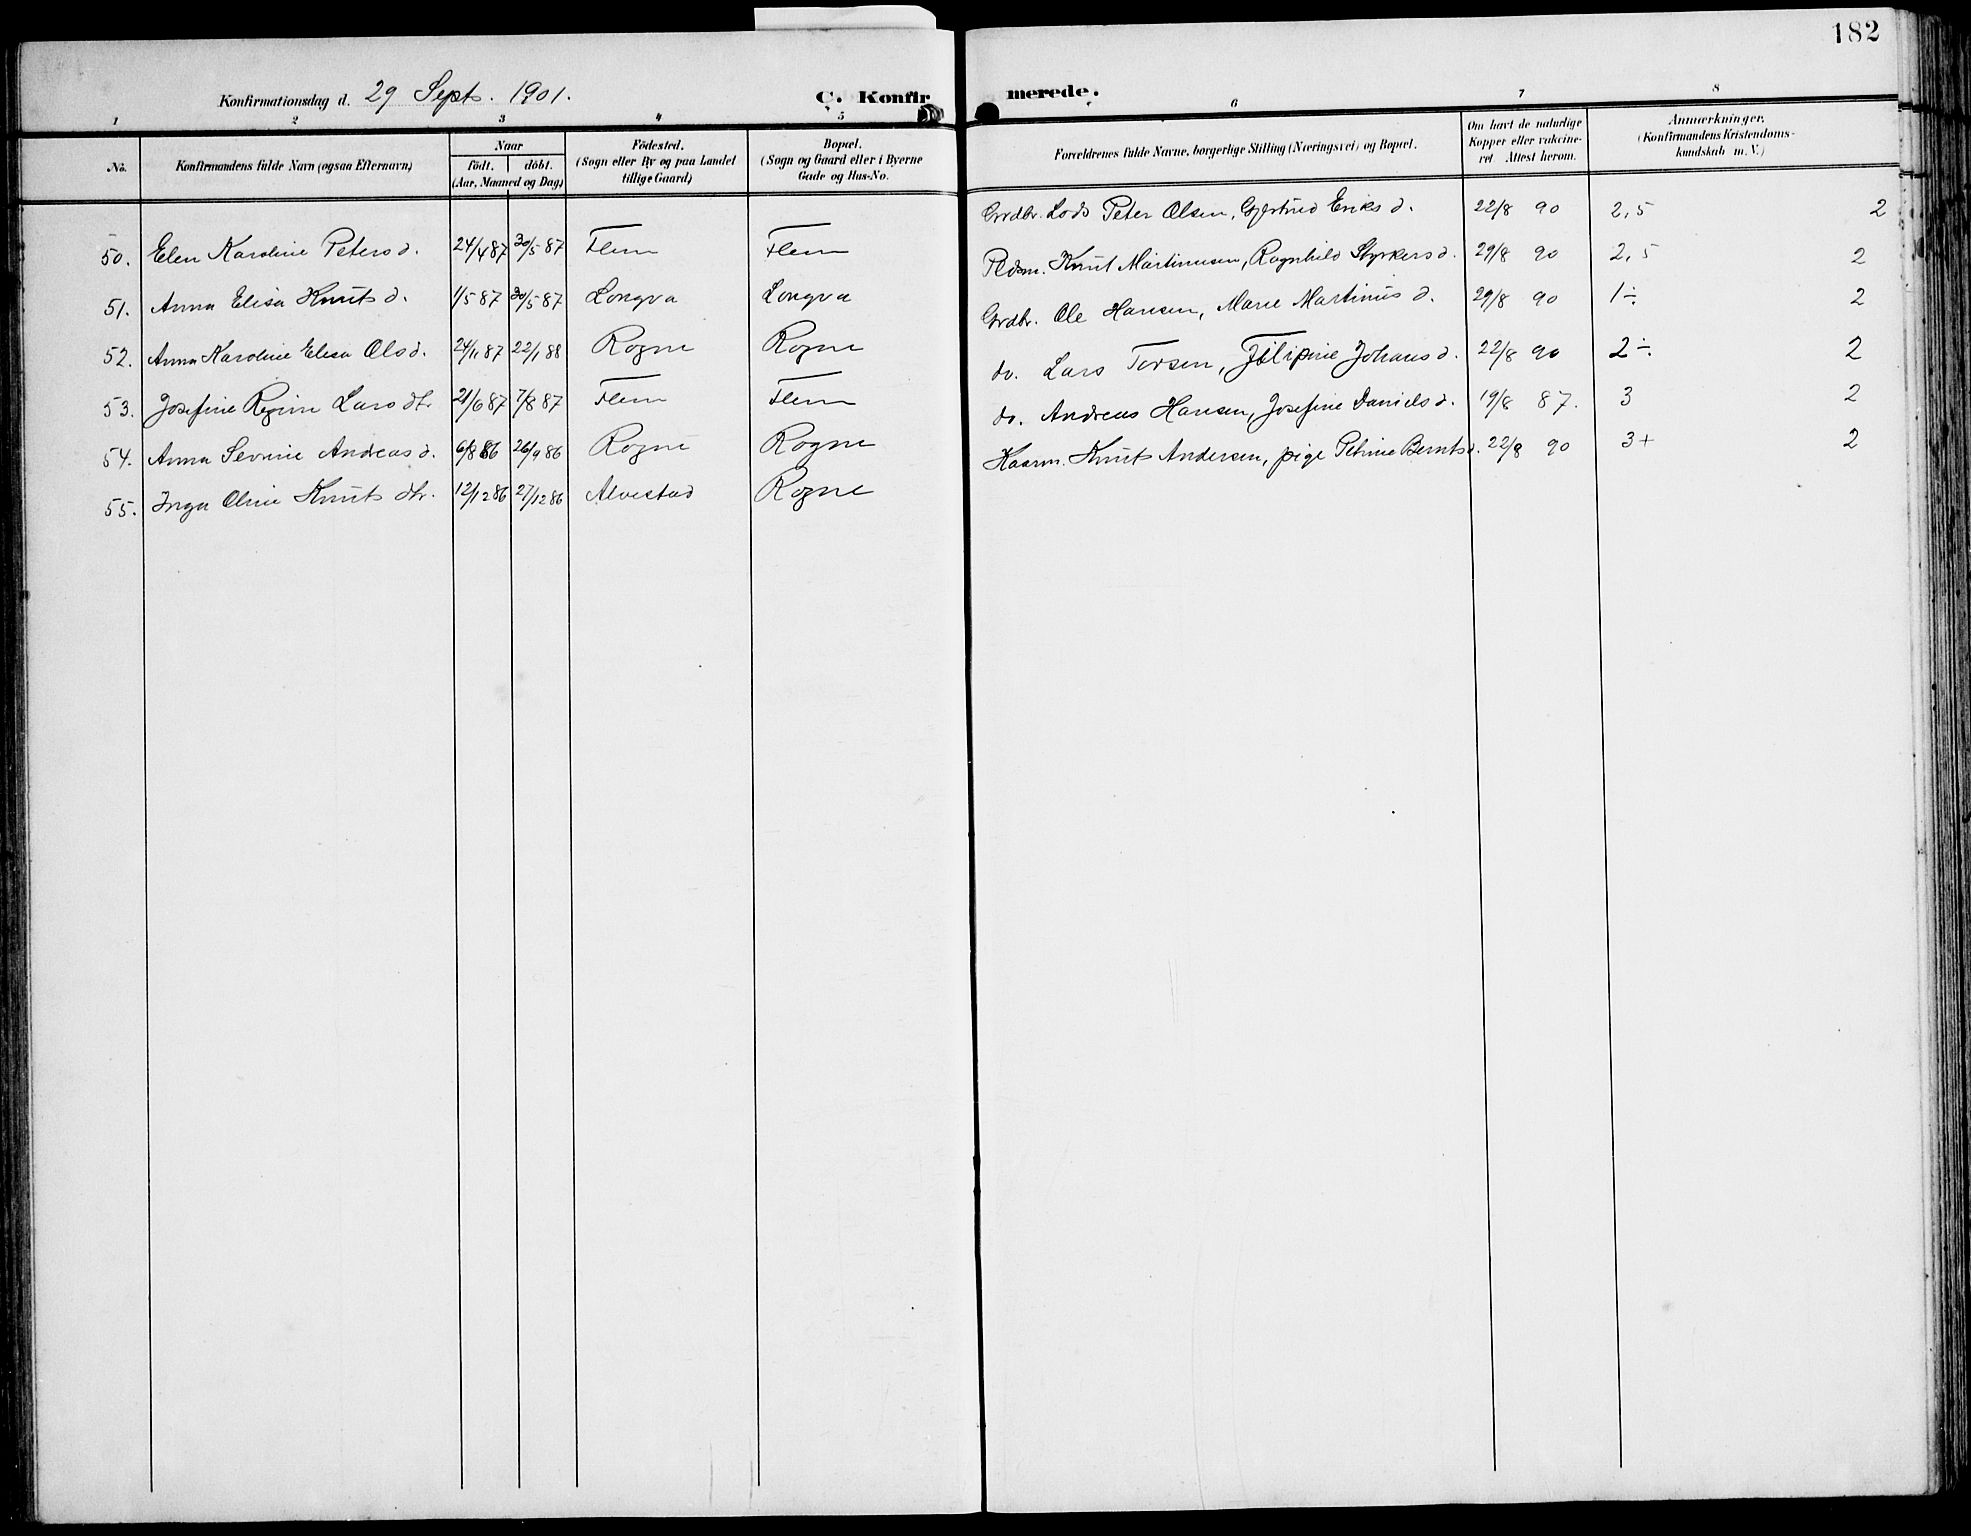 182
Konfirmationsdag d. 29 Sept. 1901.
C. Konfirmerede.
1 2 3 4 5 6 7 8
No.
Konfirmandens fulde Navn (ogsaa Efternavn)
Naar
födt. döbt.
(Aar, Maaned og Dag)
Födested.
(Sogn eller By og paa Landet
tillige Gaard)
Bopæl.
(Sogn og Gaard eller i Byerne
Gade og Hus-No.
Forældrenes fulde Navne, borgerlige Stilling (Næringsvei) og Bopæl.
Om havt de naturlige
Kopper eller vakcine-
ret. Attest herom.
Anmærkninger.
(Konfirmandens Kristendoms-
kundskab m. V.)
50. Elen Karoline Peters d. 24/4 87 30/5 87 Flem Flem Grdbr. Lods Peter Olsen, Gjertrud Eriks d. 22/8 90 2,5 2
51. Anna Elisa Knuts d. 1/5 87 30/5 87 Longva Longva Pldsm. Knut Martinusen, Ragnhild Styrkers d. 29/8 90 2,5 2
52. Anna Karoline Elisa Ols d. 24/11 87 22/1 88 Rogne Rogne Grdbr. Ole Hansen, Marie Martinus d. 29/8 90 1÷ 2
53. Josefine Regine Lars dtr. 21/6 87 7/8 87 Flem Flem do. Lars Torsen, Filipine Johans d. 22/8 90 2÷ 2
54. Anna Sevrine Andreas d. 6/8 86 26/9 86 Rogne Rogne do. Andreas Hansen, Josefine Daniels d. 19/8 87. 3 2
55. Inga Oline Knuts dtr. 12/12 86 27/12 86 Alvestad Rogne Kaarm. Knut Andersen, pige Petrine Bernts d. 22/8 90 3+ 2